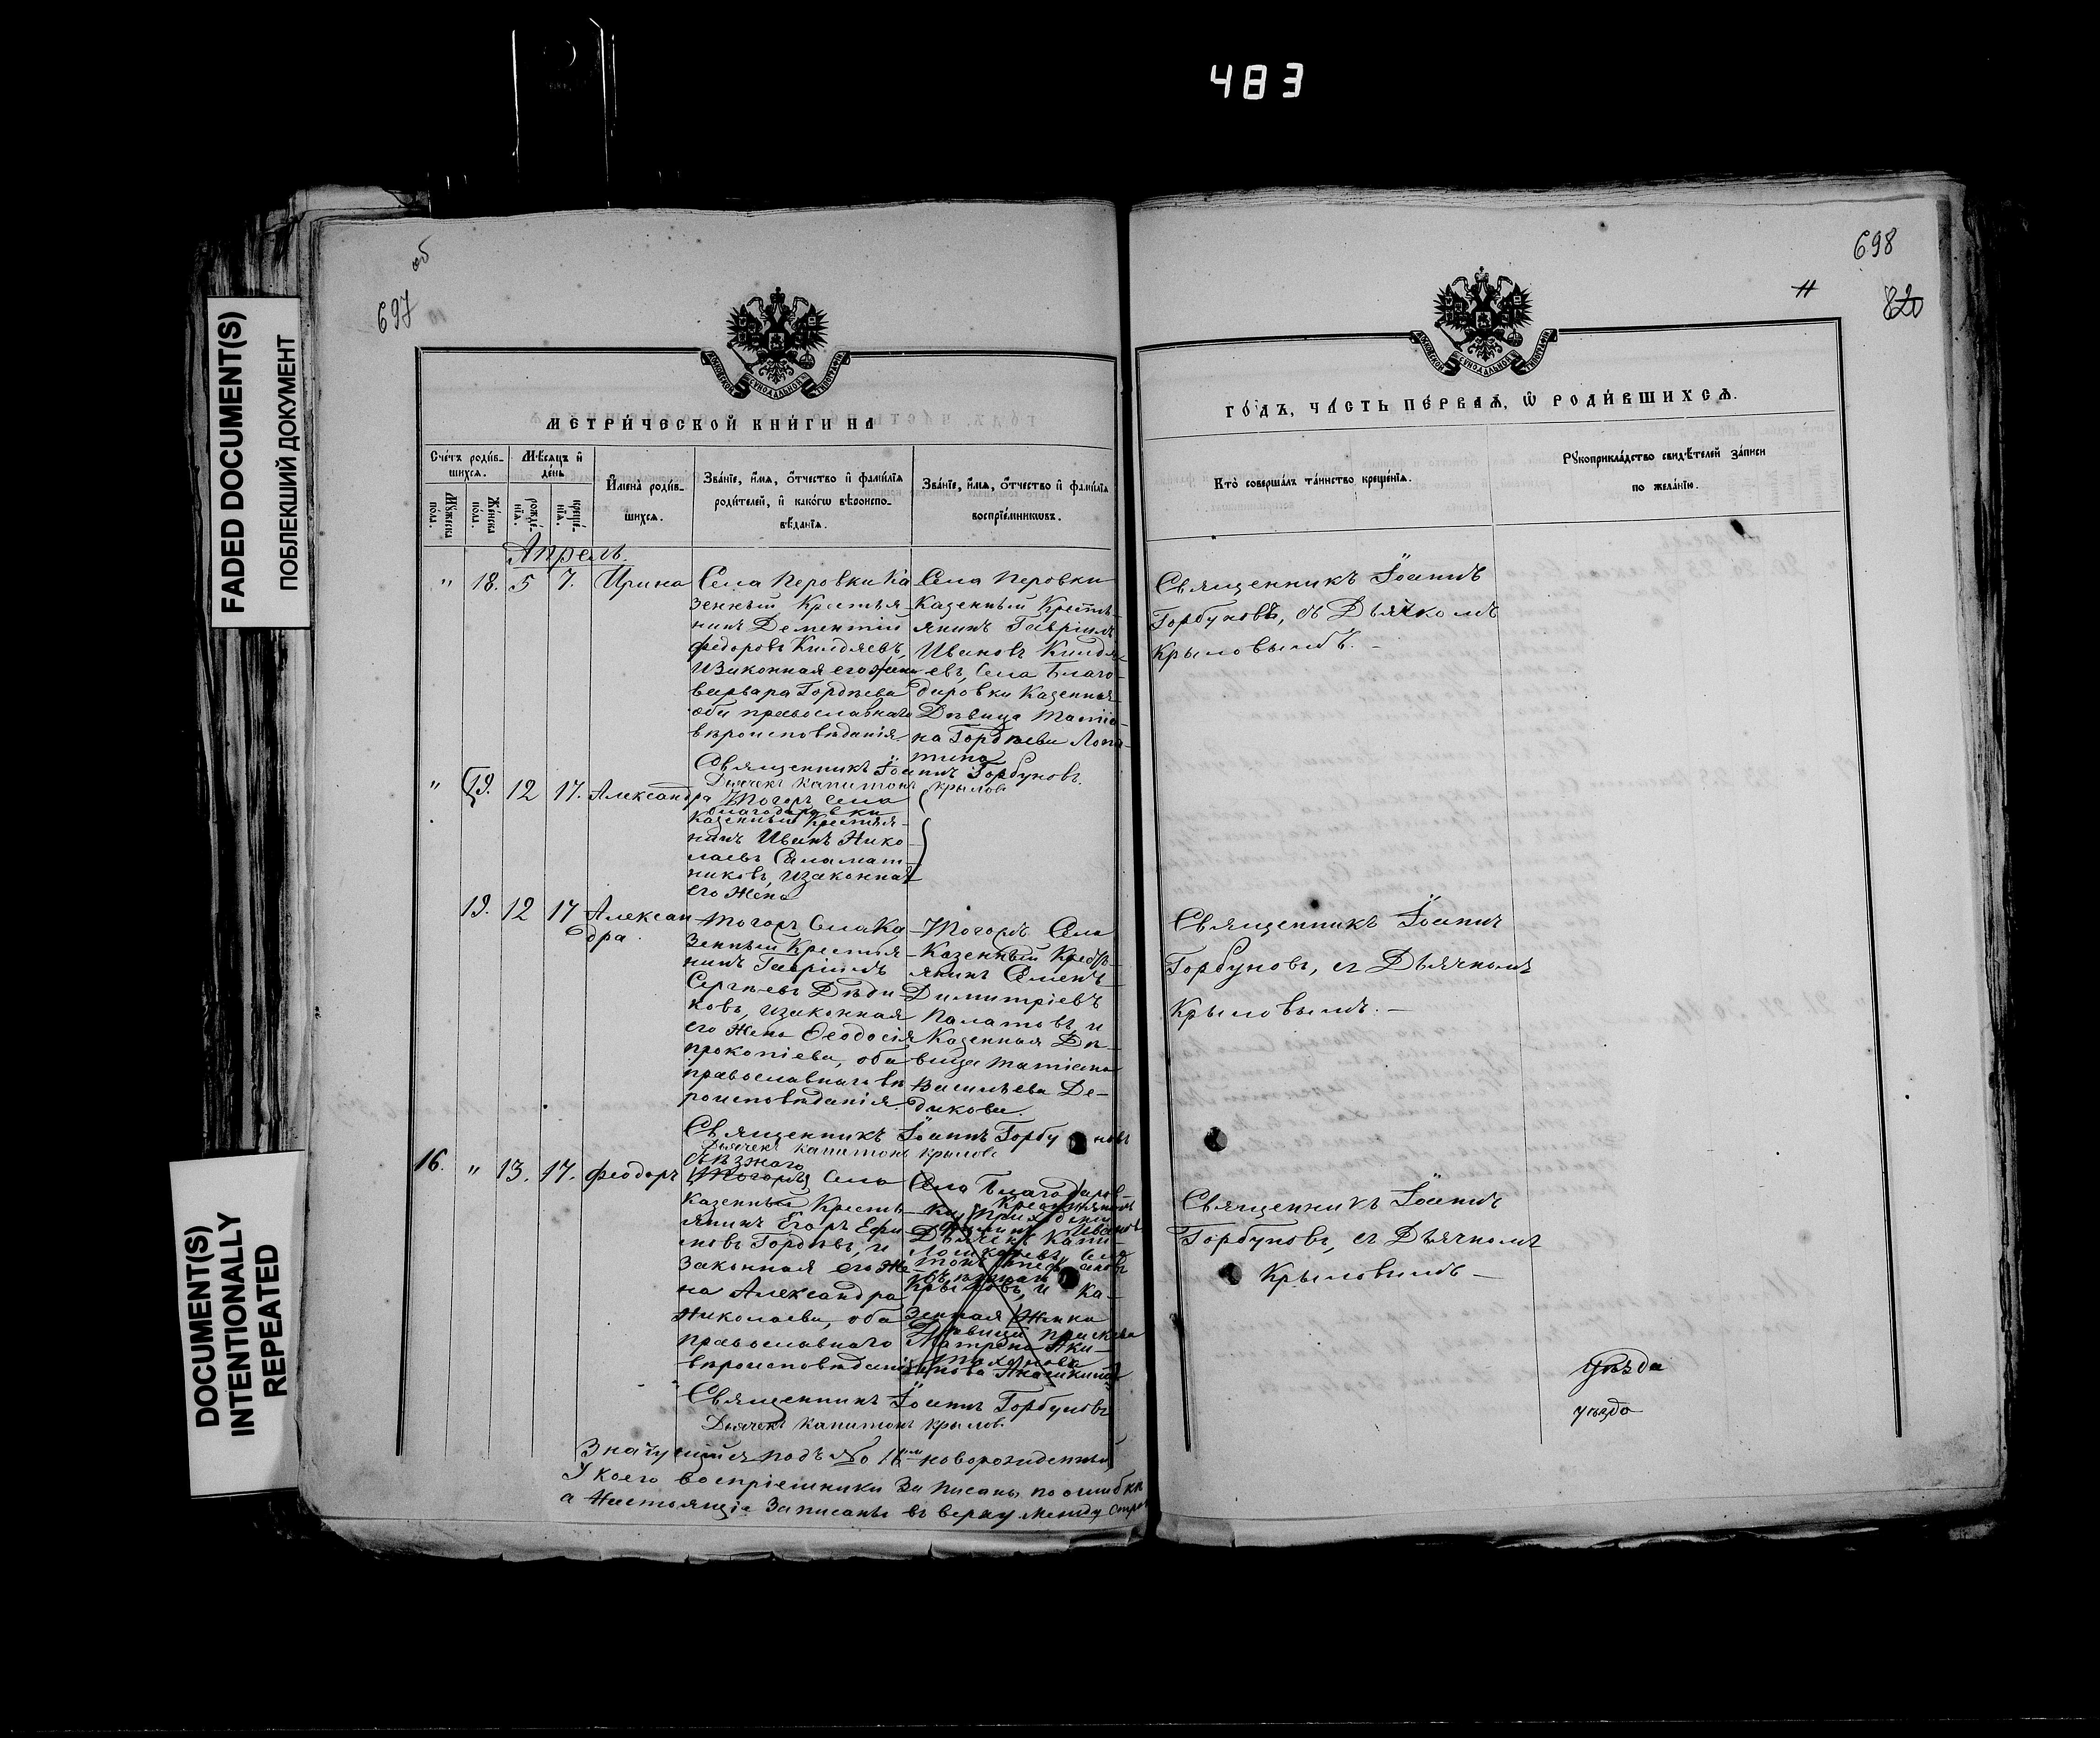 483
FADED DOCUMENT(S)
ПОБЛЕКШИЙ ДОКУМЕНТ
DOCUMENT(S)
INTENTIONALLY
REPEATED
об
697
698
11
820
МОСКОВСКОЙ СѴНОДАЛЬНОЙ ТИПОГРАФІИ
МЕТРИ́ЧЕСКОЙ КНИ́ГИ НА
Сче́тъ роди́в-
шихся.
Мѣ́сяцъ и҆
де́нь
Мꙋ́жеска по́ла.
Же́нска по́ла.
рожде́-
нїѧ.
креще́-
нїѧ.
И҆мена̀ роди́в-
шихсѧ.
Зва́нїе, и҆́мѧ, ѻ҆́тчество и҆ фами́лїѧ
роди́телей, и҆ како́гѡ вѣроиспо-
вѣ́данїѧ.
Зва́нїе, и҆́мѧ, ѻ҆́тчество и҆ фами́лїѧ
воспрїе́мникѡвъ.
Апрель.
" 18. 5 7. Ирина
Села Перовки Ка
зенный Крестья
нинъ Дементій
Федоровъ Килдяевъ,
Изаконная его жена
Варвара Гордѣева
оба православнаго
вѣроисповѣданія.
Села Перовки
Казенный Кресть
янинъ Гавріилъ
Ивановъ Килдя-
евъ, Села Благо-
даровки Казенная
Дѣвица Татіа-
на Гордѣева Лопа-
тина
Священникъ Іоаннъ Горбуновъ.
Дьячекъ Капитонъ Крыловъ
" 19. 12 17. Александра
Тогожъ Села
Благодаровки
Казенный Крестья-
нинъ Иванъ Нико-
лаевъ Саламат-
никовъ, Изаконная
его Жена
19. 12 17 Алексан
дра.
Тогожъ Села Ка
зенный Крестья
нинъ Гавріилъ
Сергѣевъ Дѣди
ковъ, изаконная
его Жена Ѳеодосія
Прокопіева, оба
православнаго вѣ
роисповѣданія.
Тогожъ Села
Казенный Кресть-
янинъ Семенъ
Димитріевъ
Палатовъ, и
Казенная Дѣ-
вица Татіана
Васильева Де-
дикова.
Священникъ Іоаннъ Горбуновъ
Дьячекъ Капитонъ Крыловъ
16. " 13. 17. Феодоръ
Тогожъ Села
Казенный Кресть
янинъ Егоръ Ефи
мовъ Гордѣевъ, и
Законная его Же-
на Александра
Николаева, оба
православнаго
вѣроисповѣданія
Села Благодаров-
Крыловъ, и Ка-
зенная Женка
Священникъ Іоаннъ Горбуновъ
Дьячекъ Капитонъ Крыловъ
Значущійся подъ № 16м новорожденный
У коего воспріемники Записаны по ошибкѣ
а Настоящіе Записаны въ верху между строкъ
ГО́ДЪ, ЧА́СТЬ ПЕ́РВАѦ, Ѡ҆ РОДИ́ВШИХСѦ.
Кто̀ соверша́лъ та́инство креще́нїѧ.
Рꙋкоприкла́дство свидѣ́телей за́писи
по жела́нїю.
Священникъ Іоаннъ
Горбуновъ, съ Дьячкомъ
Крыловымъ. –
Священникъ Іоаннъ
Горбуновъ, съ Дьячкомъ
Крыловымъ. –
Священникъ Іоаннъ
Горбуновъ, съ Дьячкомъ
Крыловымъ –
уѣзда
уѣзда